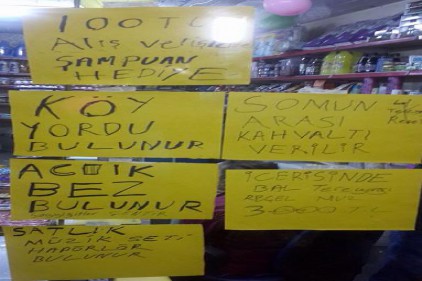 100 TL
Alış verişlere
ŞAMPUAN
HEDİYE
KÖY
YORDU
BULUNUR
SOMUN
ARASI
KAHVALTI
VERİLİR
AÇIIK
BEZ
BULUNUR
İÇERİSİNDE
BAL
REÇEL MUZ
SATLIK
MÜZİK SETİ
HAPERLÖR
BULUNUR